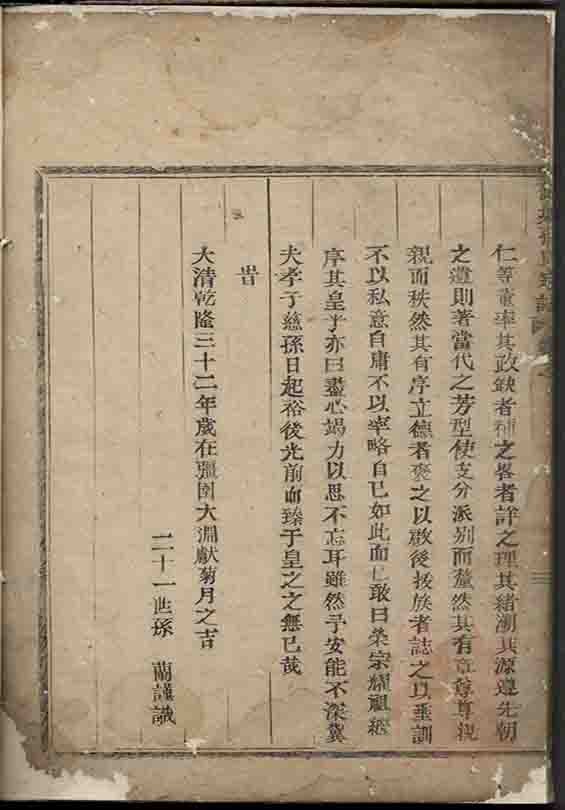 仁等董率其政缺者補之畧者詳之理其緒溯其源遵先朝
之遺則著當代之芳型使支分派別而釐然其有章尊尊親
親而秩然其有序立德者褒之以啟後援族者誌之以垂訓
不以私意自庸不以率略自已如此而已敢曰榮宗耀祖繼
序其皇乎亦曰盡心竭力以思不忘耳雖然予安能不深冀
夫孝子慈孫日起裕後光前而臻于皇之之無已哉
旹
大清乾隆三十二年歲在彊圉大淵獻菊月之吉
二十一世孫 蘭謹識